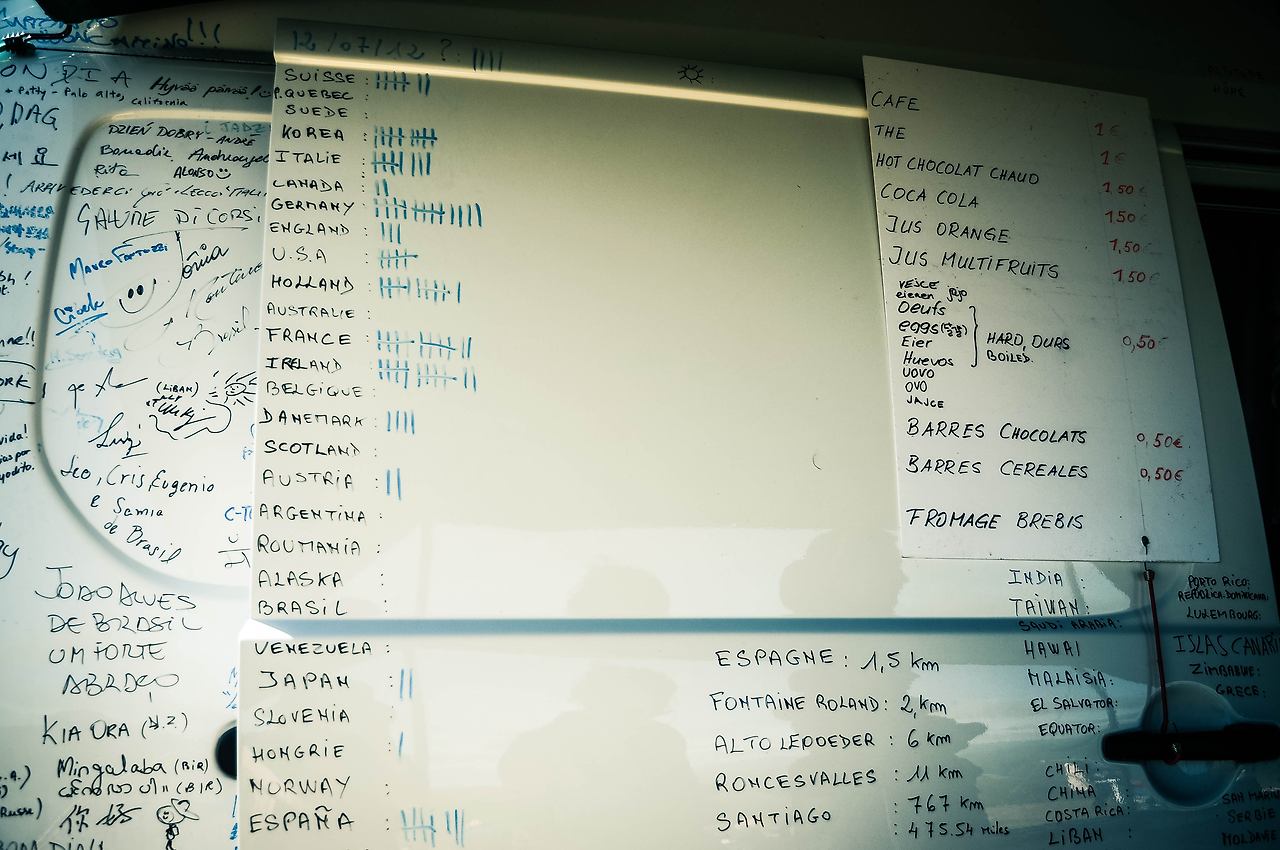 12/07/12 ? :
SUISSE :
P.QUEBEC :
SUEDE :
KOREA :
ITALIE :
CANADA :
GERMANY :
ENGLAND :
U.S.A :
HOLLAND :
AUSTRALIE :
FRANCE :
IRELAND :
BELGIQUE :
DANEMARK :
SCOTLAND :
AUSTRIA :
ARGENTINA :
ROUMANIA :
ALASKA :
BRASIL :
VENEZUELA :
JAPAN :
SLOVENIA
HONGRIE :
NORWAY :
ESPAÑA :
CAFE 1€
THE 1€
HOT CHOCOLAT CHAUD 1,50€
COCA COLA 150€
JUS ORANGE 1,50€
JUS MULTIFRUITS 150€
VEJCE
eieren jajo
Oeufs
eggs
Eier
Huevos
UOVO
OVO
JAJCE
HARD, DURS
BOILED.
0,50
BARRES CHOCOLATS 0,50€
BARRES CEREALES 0,50€
FROMAGE BREBIS
ESPAGNE : 1,5 km
FONTAINE ROLAND : 2, km
ALTO LEPOEDER : 6 km
RONCESVALLES : 11 km
SANTIAGO : 767 km
: 475.54 Miles
INDIA :
TAIWAN :
SAUDI ARABIA :
HAWAI
MALAISIA :
EL SALVATOR :
EQUATOR :
CHILI :
CHINA :
COSTA RICA :
LIBAN :
PORTO RICO :
REPUBLICA DOMINICANA :
LUXEMBOURG :
ISLAS CANARI
ZIMBABWE :
GRECE :
SAN MARI
SERBIE
MOLDAVIE
Hyvää päivää!
+ Patty - Palo alto,
california
DZIEŃ DOBRY - ANDRÉ
Rita ALONSO
SALUTE DI CORSI
MAURO
(LIBAN)
Leo, Cris, Eugenio
e Samia
de Brasil
JOAO ALVES
DE BRASIL
UM FORTE
ABRAÇO
KIA ORA (N.Z.)
Mingalaba (BIR)
(BIR)
你好